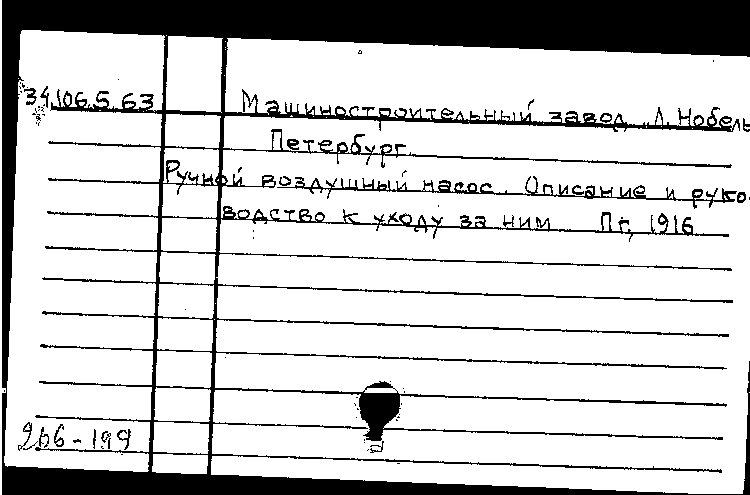 34.106.5.63 Машиностроительный завод „Л. Нобель
Петербург.
Ручной воздушный насос. Описание и руко-
водство к уходу за ним Пг, 1916
266-199